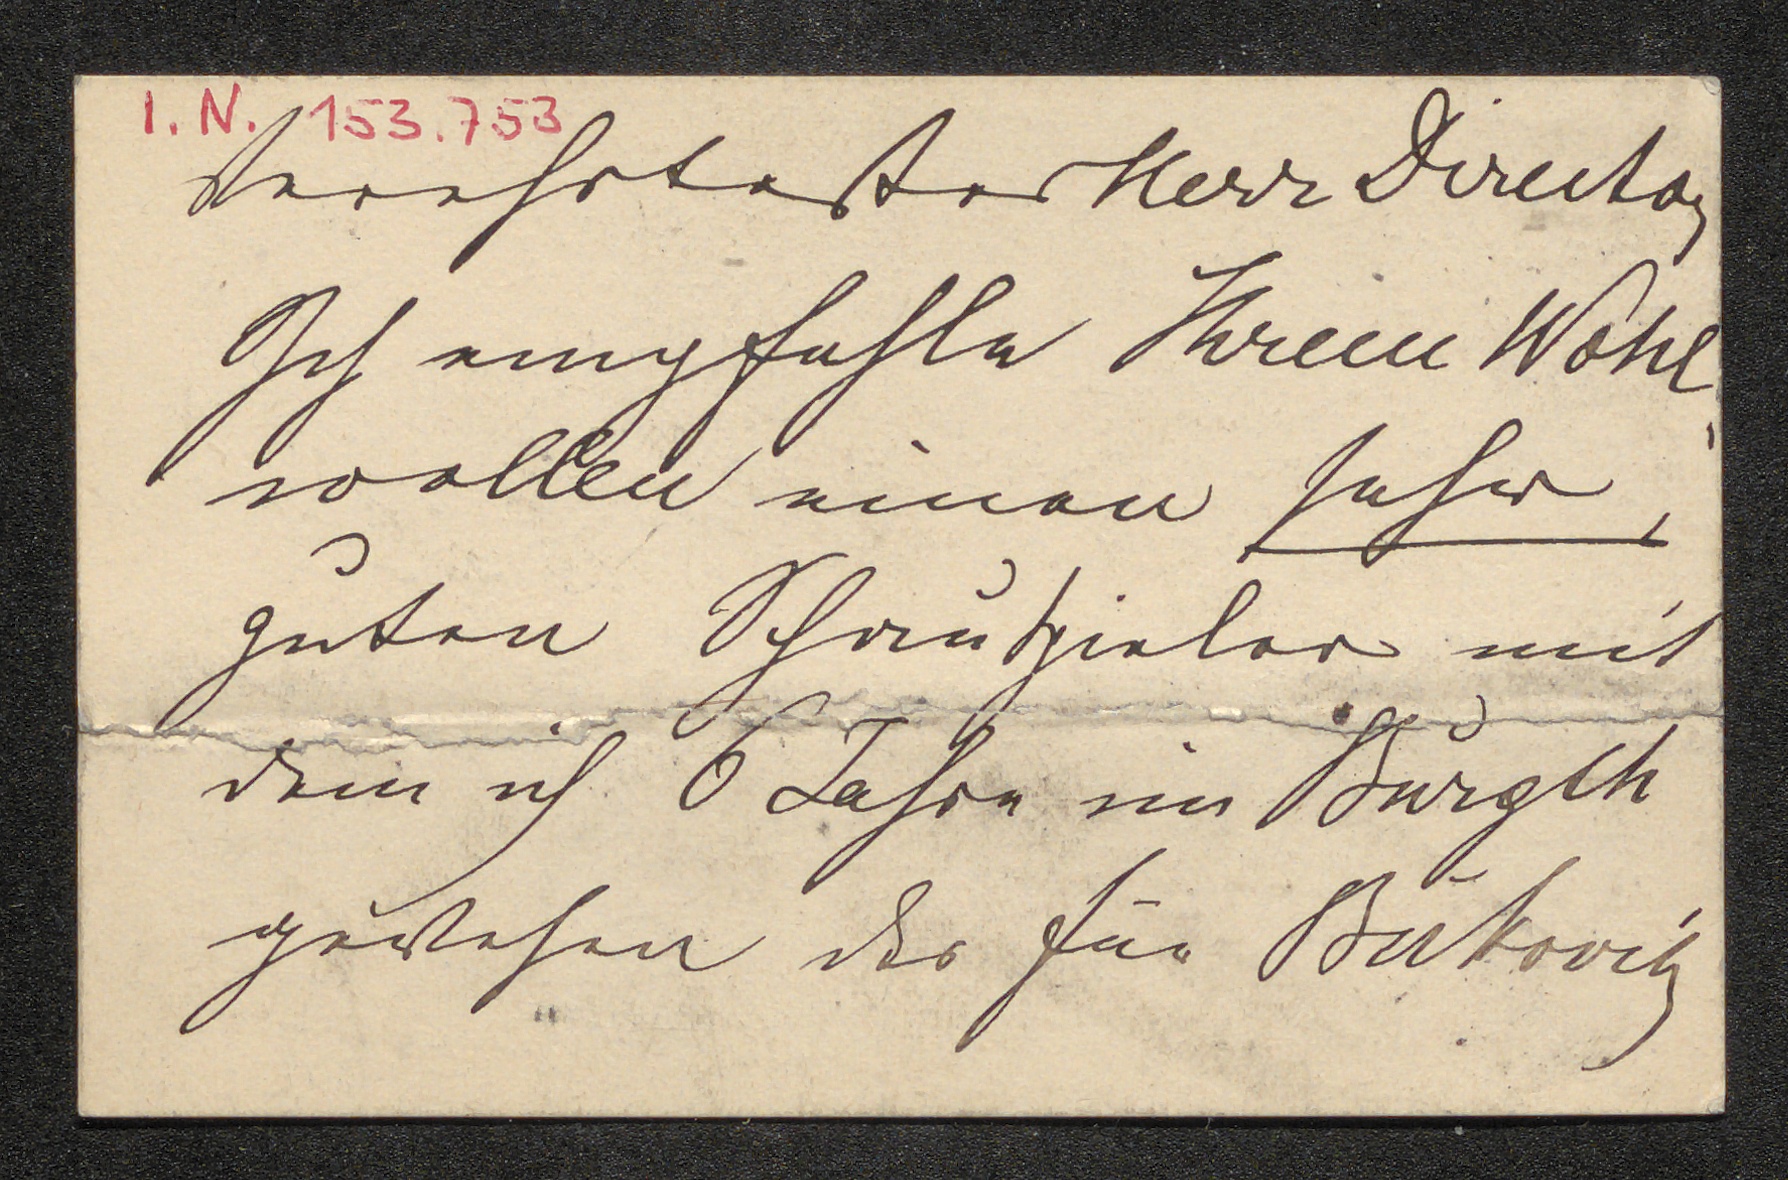 I. N. 153.753
Verehrtester Herr Director
Ich empfehle Ihrem Wohl
wollen einen sehr
guten Schauspieler mit
dem ich 6 Jahre im Burgth
gewesen der für Bukovicz